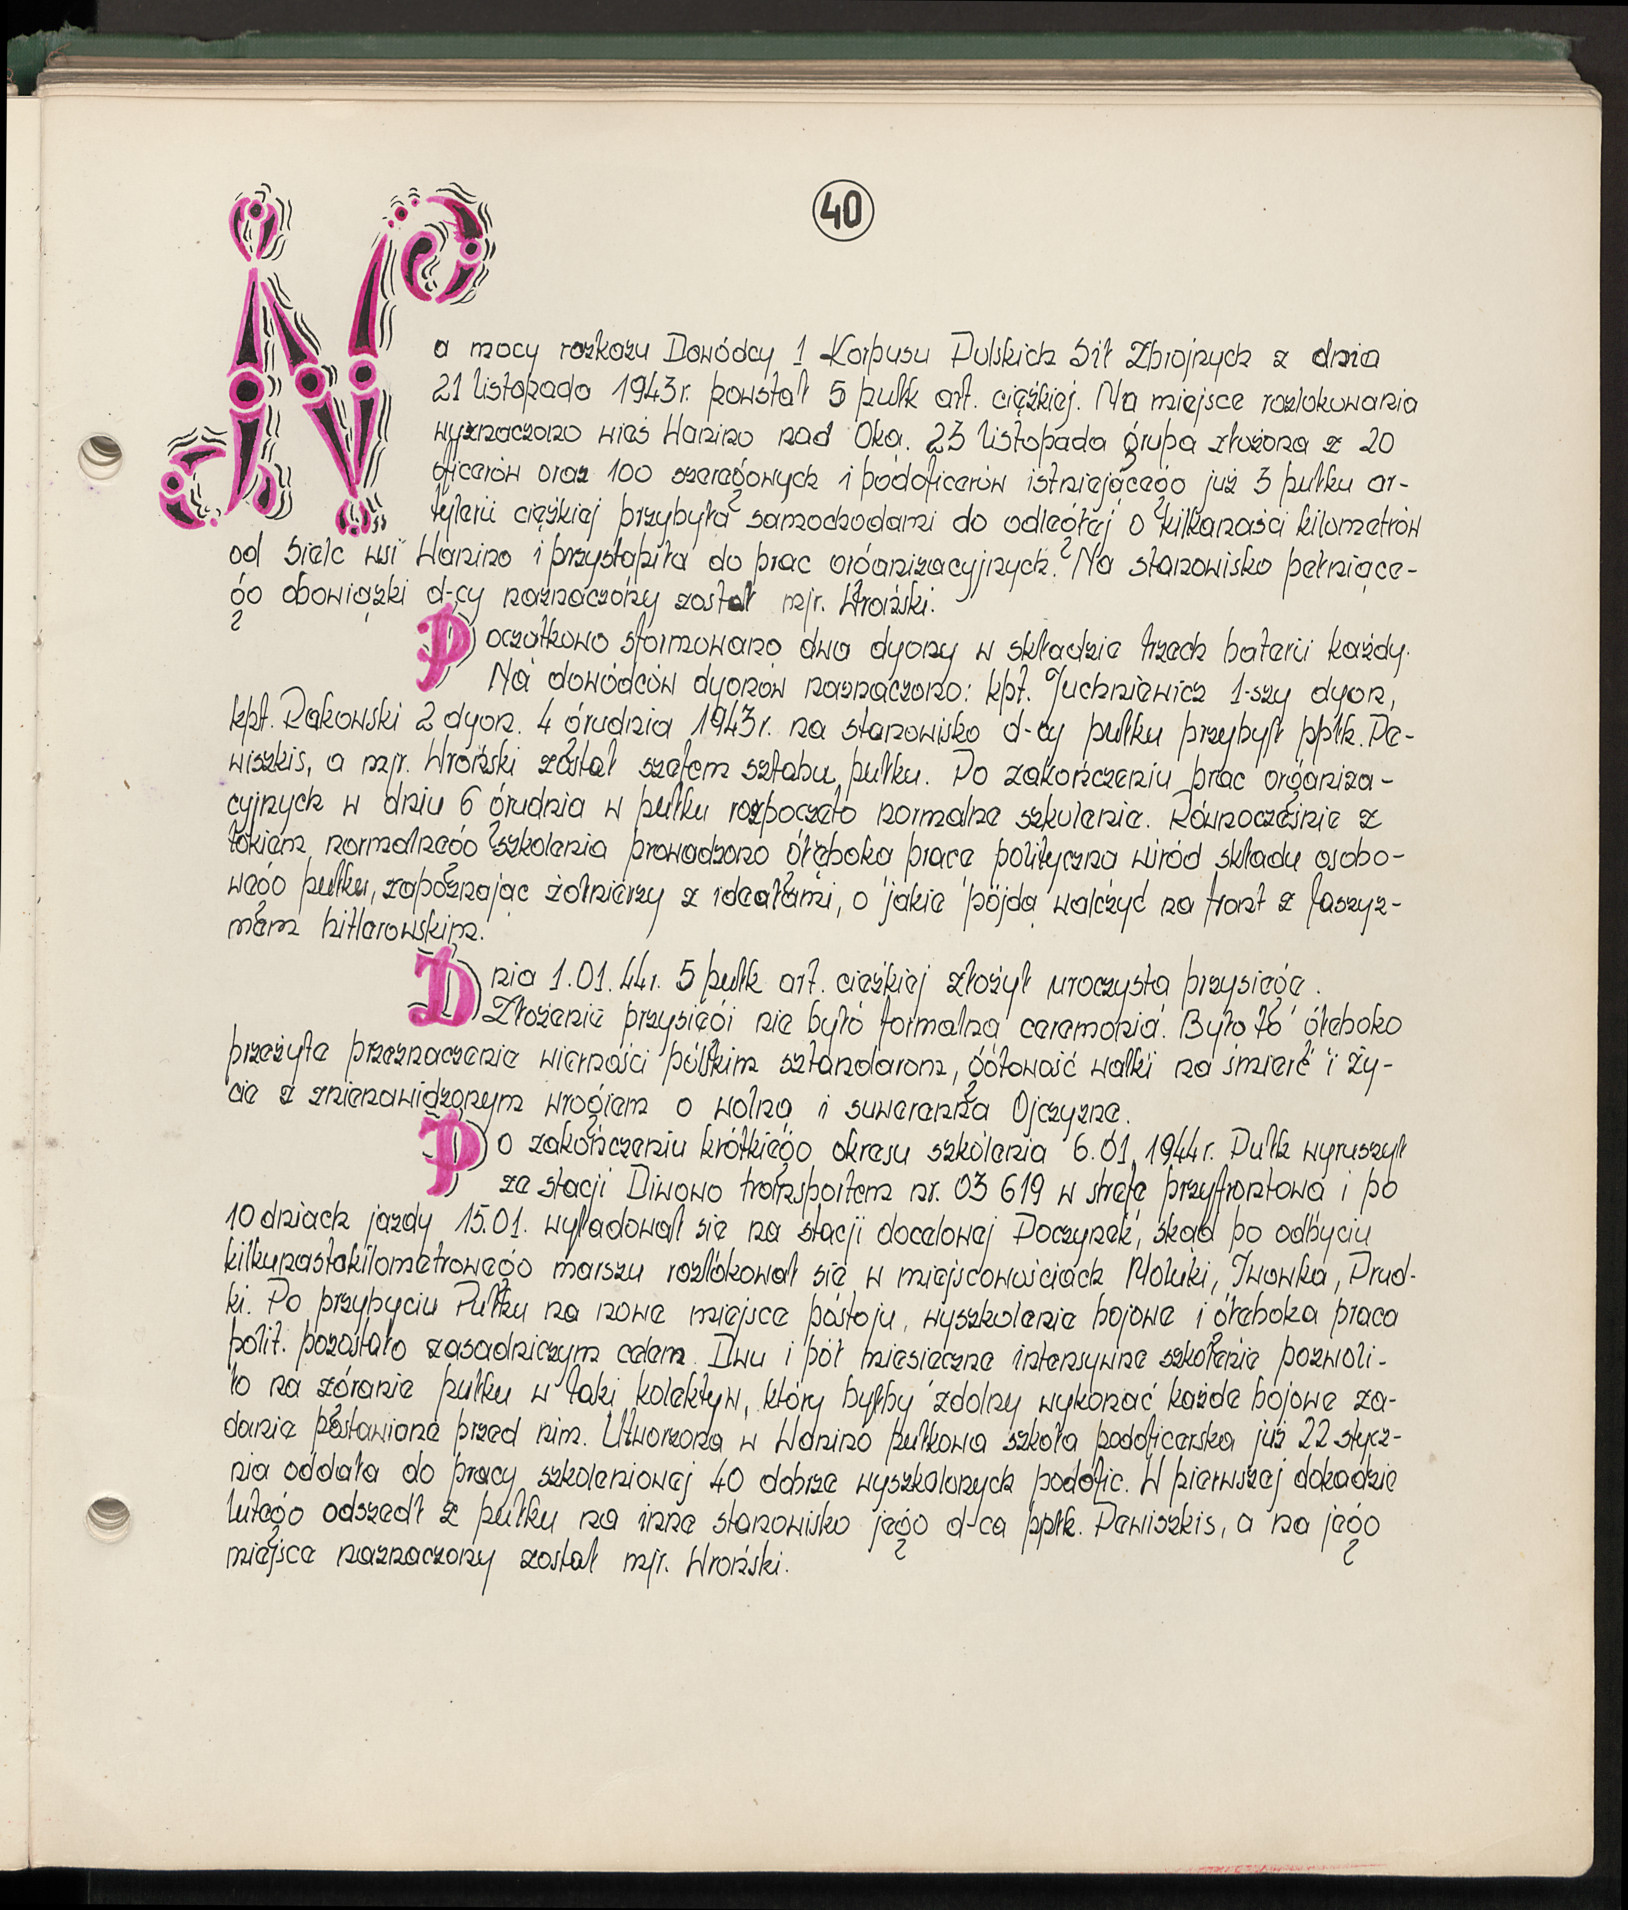 40
Na mocy rozkazu Dowódcy 1 Korpusu Polskich Sił Zbrojnych z dnia
21 listopada 1943r. powstał 5 pułk art. ciężkiej. Na miejsce rozlokowania
wyznaczono wieś Wanino nad Oką. 23 listopada grupa złożona z 20
oficerów oraz 100 szeregowych i podoficerów istniejącego już 3 pułku ar-
tylerii ciężkiej przybyła samochodami do odległej o kilkanaści kilometrów
od Sielc wsi Wanino i przystąpiła do prac organizacyjnych. Na stanowisko pełniące-
go obowiązki d-cy naznaczony został mjr. Wroński.
Początkowo sformowano dwa dyony w składzie trzech baterii każdy.
Na dowódców dyonów naznaczono: kpt. Juchniewicz 1-szy dyon,
kpt. Rakowski 2 dyon. 4 grudnia 1943r. na stanowisko d-cy pułku przybył ppłk. Pe-
wiszkis, a mjr. Wroński został szefem sztabu pułku. Po zakończeniu prac organiza-
cyjnych w dniu 6 grudnia w pułku rozpoczęto normalne szkulenie. Równocześnie z
tokiem normalnego szkolenia prowadzono głęboką pracę polityczną wśród składu osobo-
wego pułku, zapoznając żołnierzy z ideałami, o jakie pójdą walczyć na front z faszyz-
mem hitlerowskim.
Dnia 1.01.44r. 5 pułk art. ciężkiej złożył uroczystą przysięgę.
Złożenie przysięgi nie było formalną ceremonią. Było to głęboko
przeżyte przeznaczenie wierności polskim sztandarom, gotowość walki na śmierć i ży-
cie z znienawidzonym wrogiem o wolną i suwerenną Ojczyznę.
Po zakończeniu krótkiego okresu szkolenia 6.01.1944r. Pułk wyruszył
ze stacji Diwowo transportem nr. 03 619 w strefę przyfrontową i po
10 dniach jazdy 15.01. wyładował się na stacji docelowej Poczynek, skąd po odbyciu
kilkunastokilometrowego marszu rozlokował się w miejscowościach Moluki, Iwowka, Prud-
ki. Po przybyciu Pułku na nowe miejsce postoju, wyszkolenie bojowe i głęboka praca
polit. pozostało zasadniczym celem. Dwu i pół miesięczne intensywne szkolenie pozwoli-
ło na zgranie pułku w taki kolektyw, który byłby zdolny wykonać każde bojowe za-
danie postawione przed nim. Utworzona w Wanino pułkowa szkoła podoficerska już 22 stycz-
nia oddała do pracy szkoleniowej 40 dobrze wyszkolonych podofic. W pierwszej dekadzie
lutego odszedł z pułku na inne stanowisko jego d-ca ppłk. Pewiszkis, a na jego
miejsce naznaczony został mjr. Wroński.